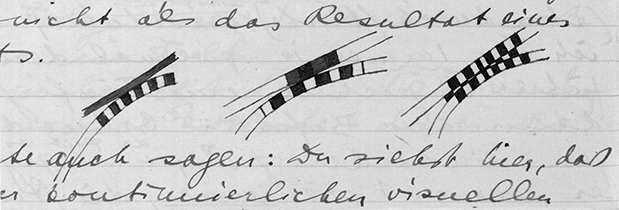 nicht als das Resultat eines
ts.
te auch sagen: Du siehst hier, daß
er continuierlichen visuellen